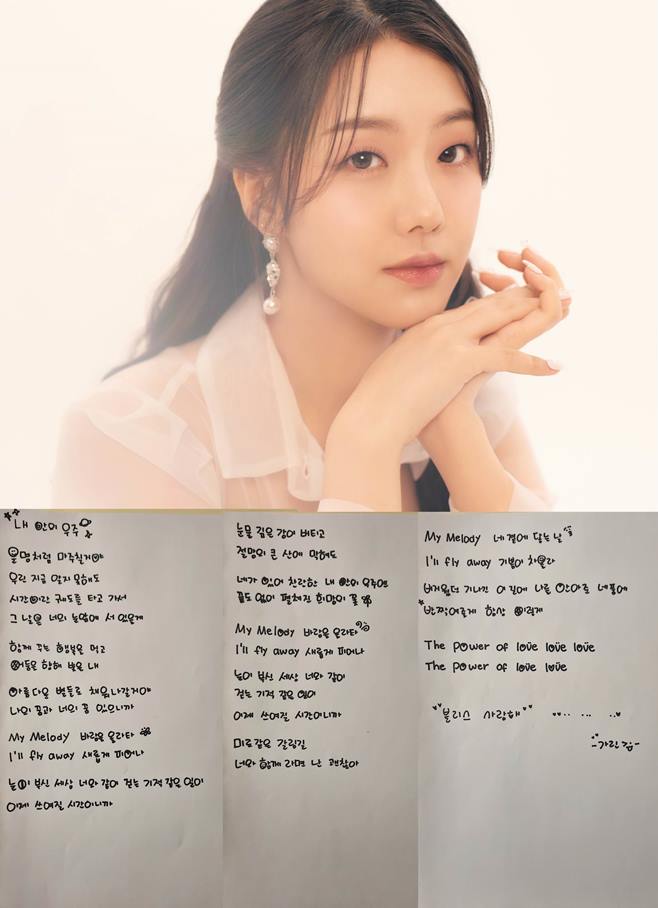 내 안의 우주
운명처럼 마주칠거야
우린 지금 알지 못해도
시간이란 궤도를 타고 가서
그 날엔 너의 눈앞에 서 있을게
함께 주는 행복을 먹고
어둠을 향해 뱉은 내
아름다운 별들로 채워나갈거야
나의 꿈과 너의 꿈 있으니까
My Melody 바람을 올라타
I'll fly away 새롭게 피어나
눈이 부신 세상 너와 같이 걷는 기적 같은 일이
이제 쓰여질 시간이니까
눈물 깊은 강이 버티고
절망의 큰 산에 막혀도
네가 있어 찬란한 내 안의 우주엔
끝도 없이 펼쳐진 희망의 꽃
My Melody 바람을 올라타
I'll fly away 새롭게 피어나
눈이 부신 세상 너와 같이
걷는 기적 같은 일이
이제 쓰여질 시간이니까
미로같은 갈림길
너와 함께 라면 난 괜찮아
My Melody 네 곁에 닿는 날
I'll fly away 기쁨이 차올라
버거웠던 기나긴 이 길에 나를 안아줘 네 품에
반짝이르게 항상 이렇게
The power of love love love
The power of love love
블리스 사랑해
-가린 김-